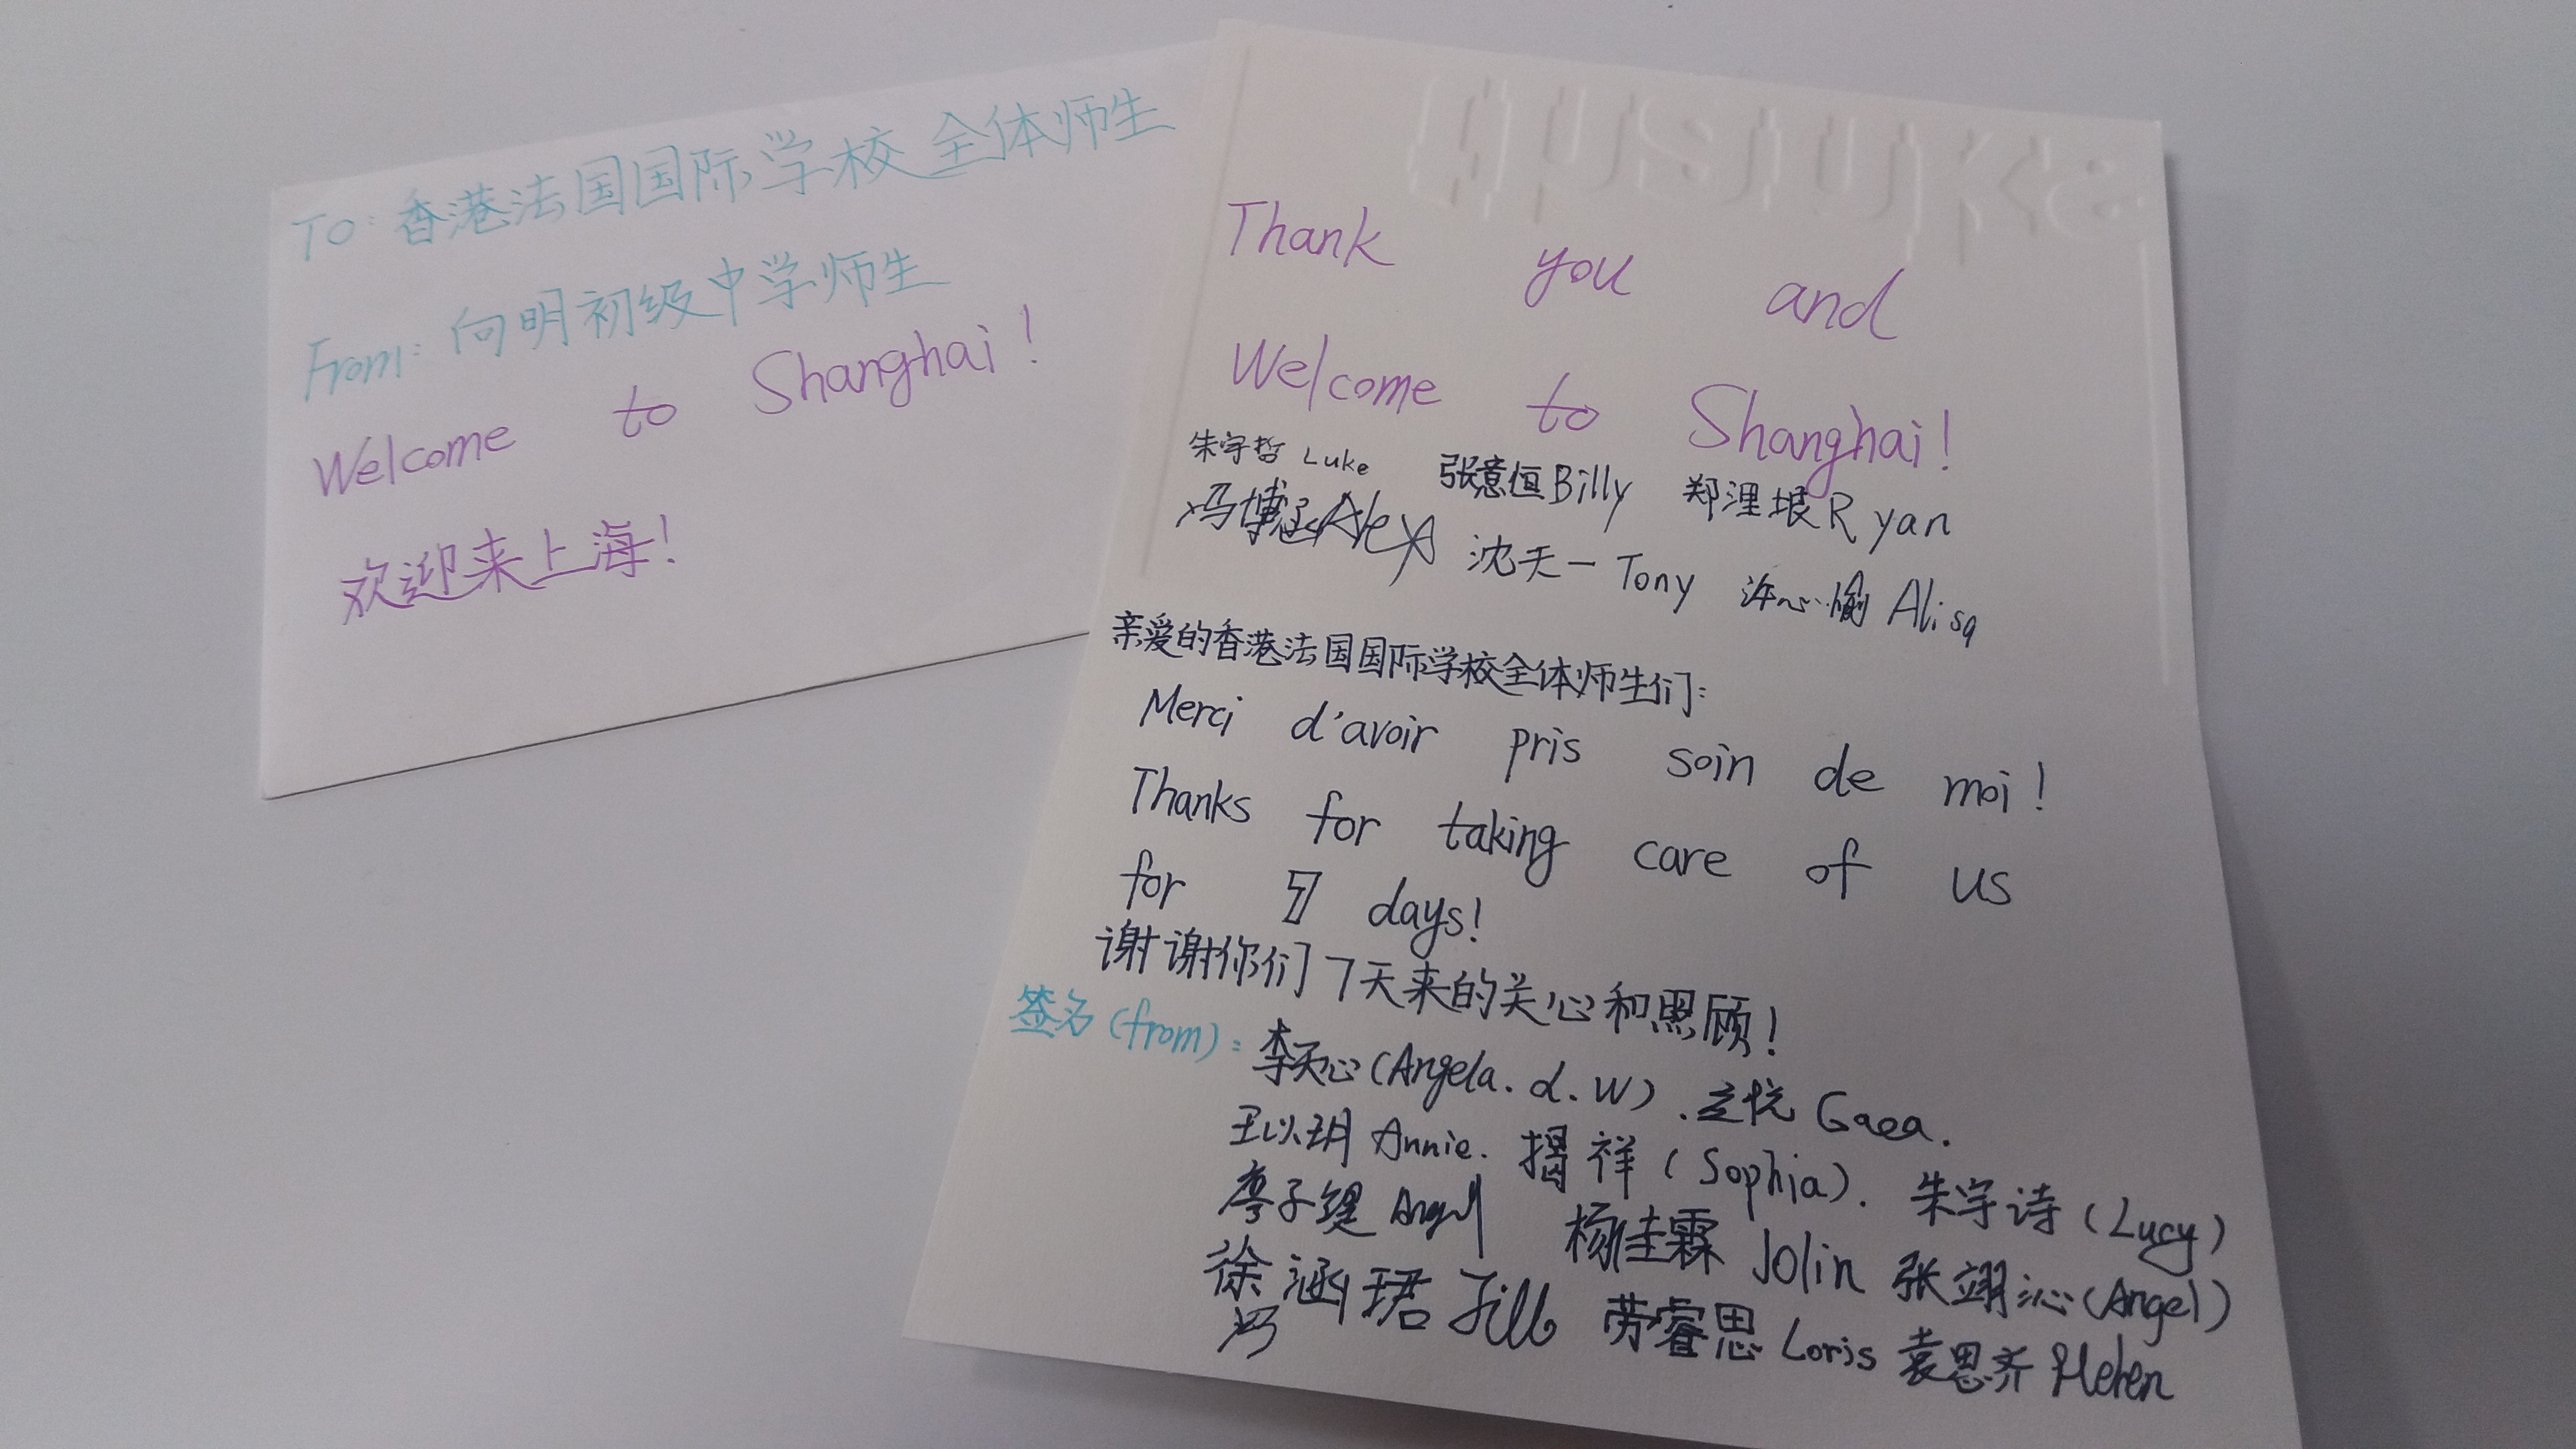 TO: 香港法国国际学校全体师生
From: 向明初级中学师生
Welcome to Shanghai!
欢迎来上海!
Thank you and
Welcome to Shanghai!
朱宇哲 Luke 张意恒Billy 郑浬垠Ryan
冯博涵Alex 沈天一 Tony 许心愉 Alisa
亲爱的香港法国国际学校全体师生们:
Merci d'avoir pris soin de moi!
Thanks for taking care of us
for 7 days!
谢谢你们7天来的关心和照顾!
签名(from): 李天心(Angela. d. W). 立悦 Gaea.
王以玥 Annie. 揭祥(Sophia). 朱宇诗(Lucy)
廖子缇 Angel 杨佳霖 Jolin 张翊沁(Angel)
徐涵珺 Jill 劳睿思 Loris 袁思齐 Helen
冯